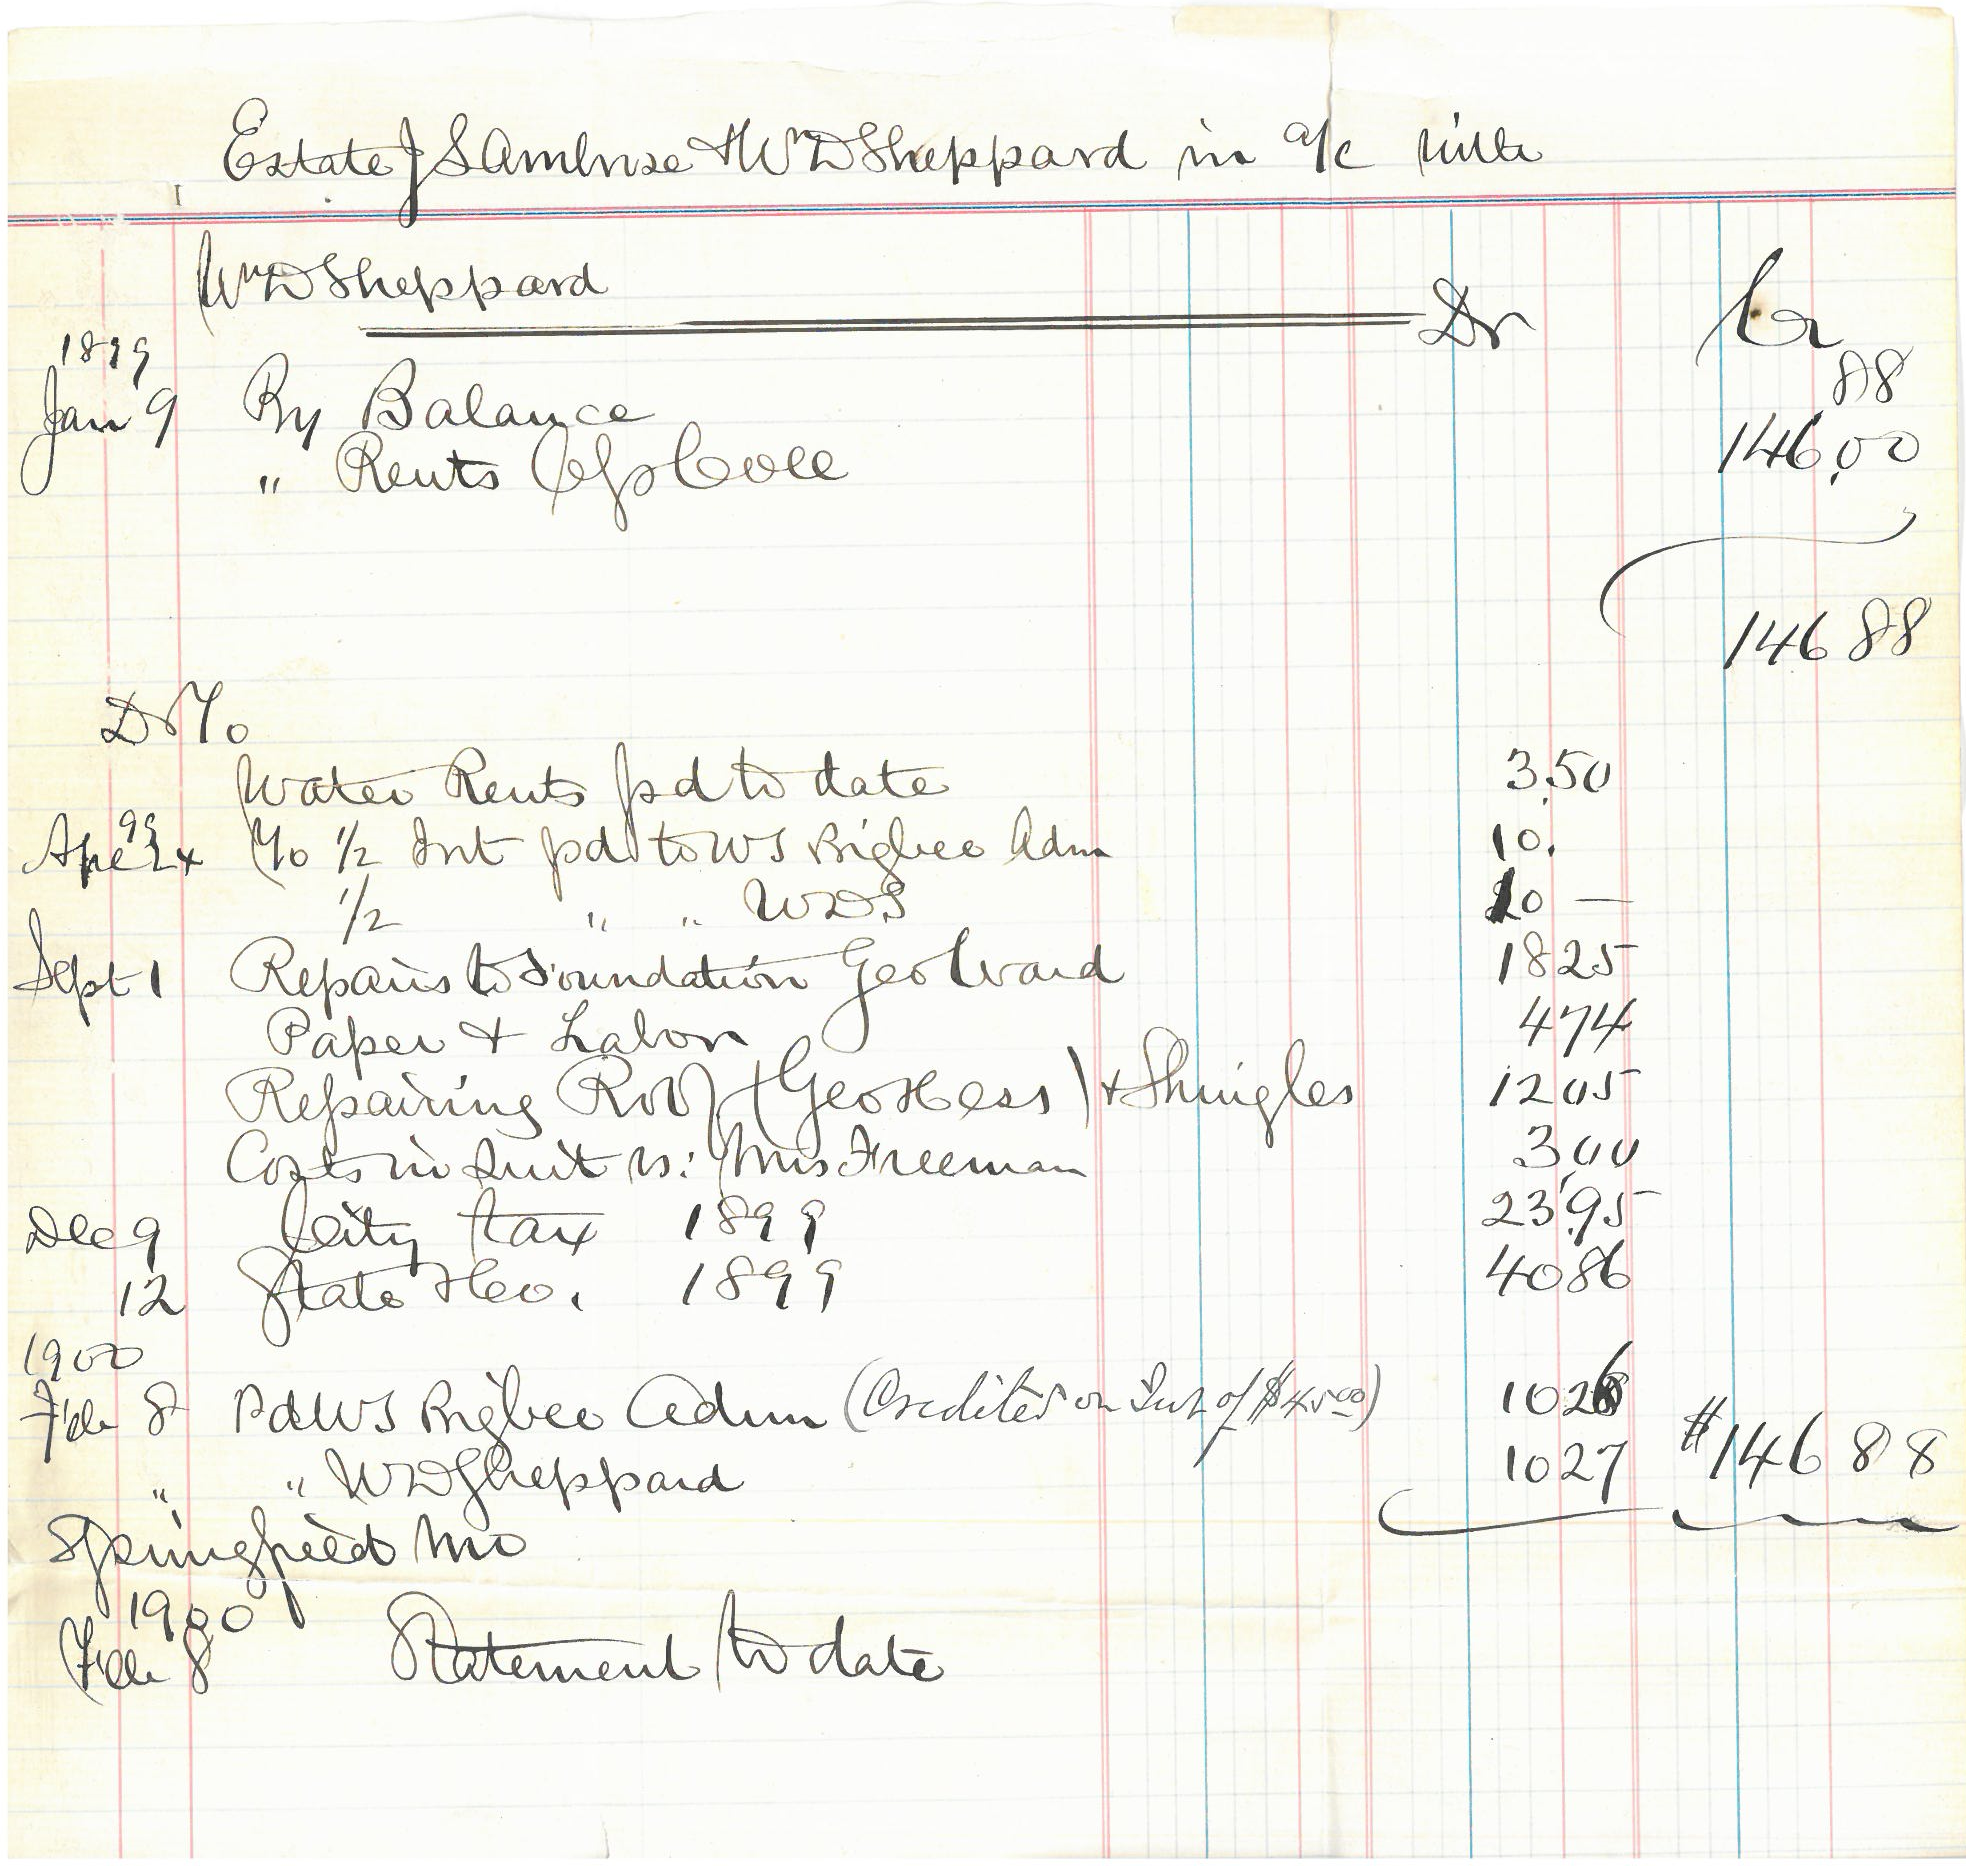 Estate J S Ambrose & Wm D Sheppard in a/c with
Wm D Sheppard Dr Cr
1899
Jan 9 By Balance 88
" Rents Coll 146.00
146 88
Dr To
Water Rents pd to date 3.50
99
Apl 24 To 1/2 Int pd to W S Bigbee Adm 10.
1/2 " " WDS 10 —
Sept 1 Repairs to Foundation Geo Ward 18 25
Paper & Labor 4 74
Repairing Roof (Geo Hess) & Shingles 12 05
Costs in Suit vs: Mrs Freeman 3,00
Dec 9 City tax 1899 23.95
12 State & Co. 1899 40 86
1900
Feb 8 Pd W S Bigbee Adm (Credited on Int of $45 00) 10 26
" " W D Sheppard 10 27 $146 88
Springfield Mo
1900
Feb 8 Statement to date